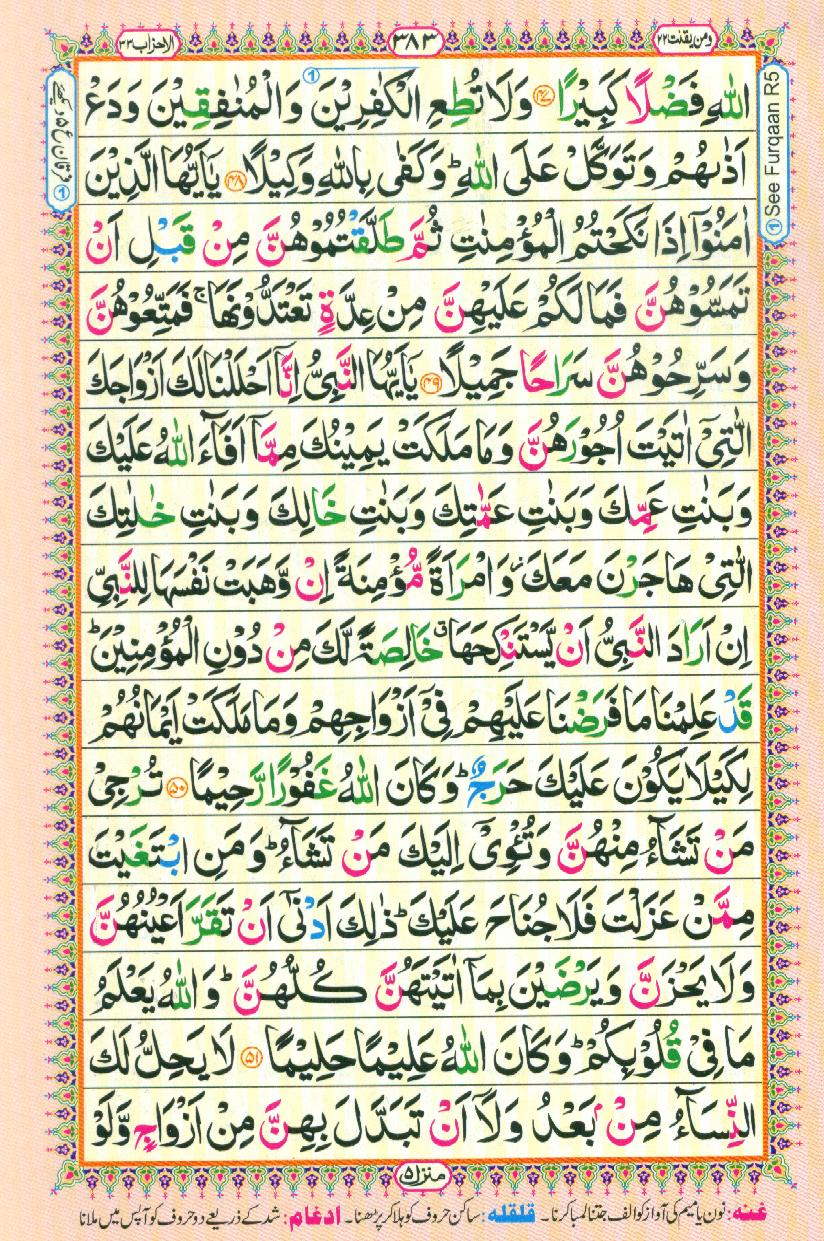 ومن یقنت ۲۲
۳۸۳
الاحزاب ۳۳
① See Furqaan R5
①
اللّٰهِ فَضْلًا كَبِيْرًا ﴿۴۷﴾ وَلَا تُطِعِ الْكٰفِرِيْنَ وَالْمُنٰفِقِيْنَ وَدَعْ
اَذٰىهُمْ وَتَوَكَّلْ عَلَى اللّٰهِ ؕ وَكَفٰى بِاللّٰهِ وَكِيْلًا ﴿۴۸﴾ يٰۤاَيُّهَا الَّذِيْنَ
اٰمَنُوْۤا اِذَا نَكَحْتُمُ الْمُؤْمِنٰتِ ثُمَّ طَلَّقْتُمُوْهُنَّ مِنْ قَبْلِ اَنْ
تَمَسُّوْهُنَّ فَمَا لَكُمْ عَلَيْهِنَّ مِنْ عِدَّةٍ تَعْتَدُّوْنَهَا ۚ فَمَتِّعُوْهُنَّ
وَسَرِّحُوْهُنَّ سَرَاحًا جَمِيْلًا ﴿۴۹﴾ يٰۤاَيُّهَا النَّبِيُّ اِنَّاۤ اَحْلَلْنَا لَكَ اَزْوَاجَكَ
الّٰتِيْۤ اٰتَيْتَ اُجُوْرَهُنَّ وَمَا مَلَكَتْ يَمِيْنُكَ مِمَّاۤ اَفَآءَ اللّٰهُ عَلَيْكَ
وَبَنٰتِ عَمِّكَ وَبَنٰتِ عَمّٰتِكَ وَبَنٰتِ خَالِكَ وَبَنٰتِ خٰلٰتِكَ
الّٰتِيْ هَاجَرْنَ مَعَكَ ؗ وَامْرَاَةً مُّؤْمِنَةً اِنْ وَّهَبَتْ نَفْسَهَا لِلنَّبِيِّ
اِنْ اَرَادَ النَّبِيُّ اَنْ يَّسْتَنْكِحَهَا ۗ خَالِصَةً لَّكَ مِنْ دُوْنِ الْمُؤْمِنِيْنَ ؕ
قَدْ عَلِمْنَا مَا فَرَضْنَا عَلَيْهِمْ فِيْۤ اَزْوَاجِهِمْ وَمَا مَلَكَتْ اَيْمَانُهُمْ
لِكَيْلَا يَكُوْنَ عَلَيْكَ حَرَجٌ ؕ وَكَانَ اللّٰهُ غَفُوْرًا رَّحِيْمًا ﴿۵۰﴾ تُرْجِيْ
مَنْ تَشَآءُ مِنْهُنَّ وَتُــْٔوِيْۤ اِلَيْكَ مَنْ تَشَآءُ ؕ وَمَنِ ابْتَغَيْتَ
مِمَّنْ عَزَلْتَ فَلَا جُنَاحَ عَلَيْكَ ؕ ذٰلِكَ اَدْنٰۤى اَنْ تَقَرَّ اَعْيُنُهُنَّ
وَلَا يَحْزَنَّ وَيَرْضَيْنَ بِمَاۤ اٰتَيْتَهُنَّ كُلُّهُنَّ ؕ وَاللّٰهُ يَعْلَمُ
مَا فِيْ قُلُوْبِكُمْ ؕ وَكَانَ اللّٰهُ عَلِيْمًا حَلِيْمًا ﴿۵۱﴾ لَا يَحِلُّ لَكَ
النِّسَآءُ مِنْۢ بَعْدُ وَلَاۤ اَنْ تَبَدَّلَ بِهِنَّ مِنْ اَزْوَاجٍ وَّلَوْ
منزل ۵
غنه: نون یا میم کی آواز کو الف جتنا لمبا کرنا۔ قلقله: ساکن حروف کو ہلا کر پڑھنا۔ ادغام: شد کے ذریعے دو حروف کو آپس میں ملانا